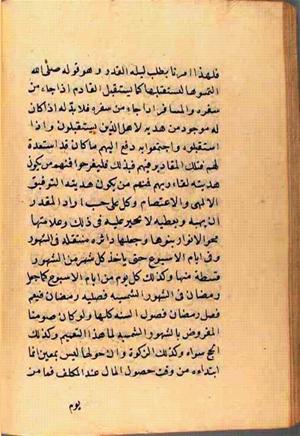 فلهذا امرنا بطلب ليلة القدر وهو قوله صلى الله
التمسوها لنستقبلها كما يستقبل القادم اذا جاء من
سفره والمسافر اذا جاء من سفره فلا بد له اذا كان
له موجود من هدية لاهل الذين يستقبلونه واذا
استقبلوه واجتمعوا به دفع اليهم ما كان قد استعده
لهم فتلك المقادير فيهم فبذلك فليفرحوا فمنهم من يكون
هديته لقاء ربهم ومنهم من يكون هديته التوفيق
الالهي والاعتصام وكل على حسب ما اراد المقدر
ان يهبه ويعطيه لا تحجير عليه في ذلك وعلامتها
محو الانوار بنورها وجعلها دائرة متنقلة في الشهور
وفي ايام الاسبوع حتى ياخذ كل شهر من الشهور
قسطه منها وكذلك كل يوم من ايام الاسبوع كما جعل
رمضان في الشهور الشمسية فصليه رمضان فيعم
فضل رمضان فصول السنة كلها ولو كان صومنا
المفروض بالشهور الشمسية لما عم هذا التعميم وكذلك
الحج سواء وكذلك الزكوة وان حولها ليس بمعين انما
ابتداءه من وقت حصول المال عند المكلف فما من
يوم